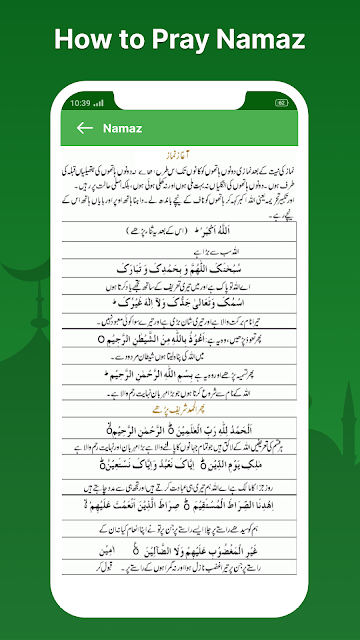 How to Pray Namaz
10:39
62
Namaz
آغاز نماز
نماز کی نیت کے بعد نمازی دونوں ہاتھوں کو کانوں تک اس طرح اٹھائے کہ دونوں ہاتھوں کی ہتھیلیاں قبلہ کی
طرف ہوں۔ دونوں ہاتھوں کی انگلیاں نہ بہت ملی ہوں اور نہ کھلی ہوئی ہوں، بلکہ اصلی حالت پر رہیں۔
اور تکبیر تحریمہ یعنی اللہ اکبر کہہ کر ہاتھوں کو ناف کے نیچے باندھ لے۔ داہنا ہاتھ اوپر اور بایاں ہاتھ اس کے
نیچے رہے۔
اَللّٰهُ اَكْبَرُ ؕ (اس کے بعد یہ ثناء پڑھے)
اللہ سب سے بڑا ہے
سُبْحٰنَكَ اللّٰهُمَّ وَ بِحَمْدِكَ وَ تَبَارَكَ
اے اللہ تو پاک ہے اور میں تیری تعریف کے ساتھ تجھے یاد کرتا ہوں
اسْمُكَ وَتَعَالٰى جَدُّكَ وَلَا اِلٰهَ غَيْرُكَ ؕ
تیرا نام برکت والا ہے اور تیری شان بڑی ہے اور تیرے سوا کوئی معبود نہیں۔
پھر تعوذ پڑھیں، وہ یہ ہے: اَعُوْذُ بِاللّٰهِ مِنَ الشَّيْطٰنِ الرَّجِيْمِ ۝
میں اللہ کی پناہ لیتا ہوں شیطان مردود سے۔
پھر تسمیہ پڑھے اور وہ یہ ہے بِسْمِ اللّٰهِ الرَّحْمٰنِ الرَّحِيْمِ ؕ
اللہ کے نام سے شروع کرتا ہوں جو بڑا مہربان نہایت رحم والا ہے۔
پھر الحمد شریف پڑھے
اَلْحَمْدُ لِلّٰهِ رَبِّ الْعٰلَمِيْنَ ۝ الرَّحْمٰنِ الرَّحِيْمِ ۝
ہر قسم کی تعریفیں اللہ کے لائق ہیں جو تمام جہانوں کا پالنے والا ہے بڑا مہربان اور نہایت رحم والا ہے
مٰلِكِ يَوْمِ الدِّيْنِ ۝ اِيَّاكَ نَعْبُدُ وَاِيَّاكَ نَسْتَعِيْنُ ۝
روز جزا کا مالک ہے اے اللہ ہم تیری ہی عبادت کرتے ہیں اور تجھ ہی سے مدد چاہتے ہیں
اِهْدِنَا الصِّرَاطَ الْمُسْتَقِيْمَ ۝ صِرَاطَ الَّذِيْنَ اَنْعَمْتَ عَلَيْهِمْ
ہم کو سیدھے راستے پر چلا ایسے راستے پر جن پر تو نے اپنا انعام کیا نہ ان کے
غَيْرِ الْمَغْضُوْبِ عَلَيْهِمْ وَلَا الضَّآلِّيْنَ ۝ اٰمِيْن
راستے پر جن پر تیرا غضب نازل ہوا اور نہ گمراہوں کے راستے پر۔ قبول کر